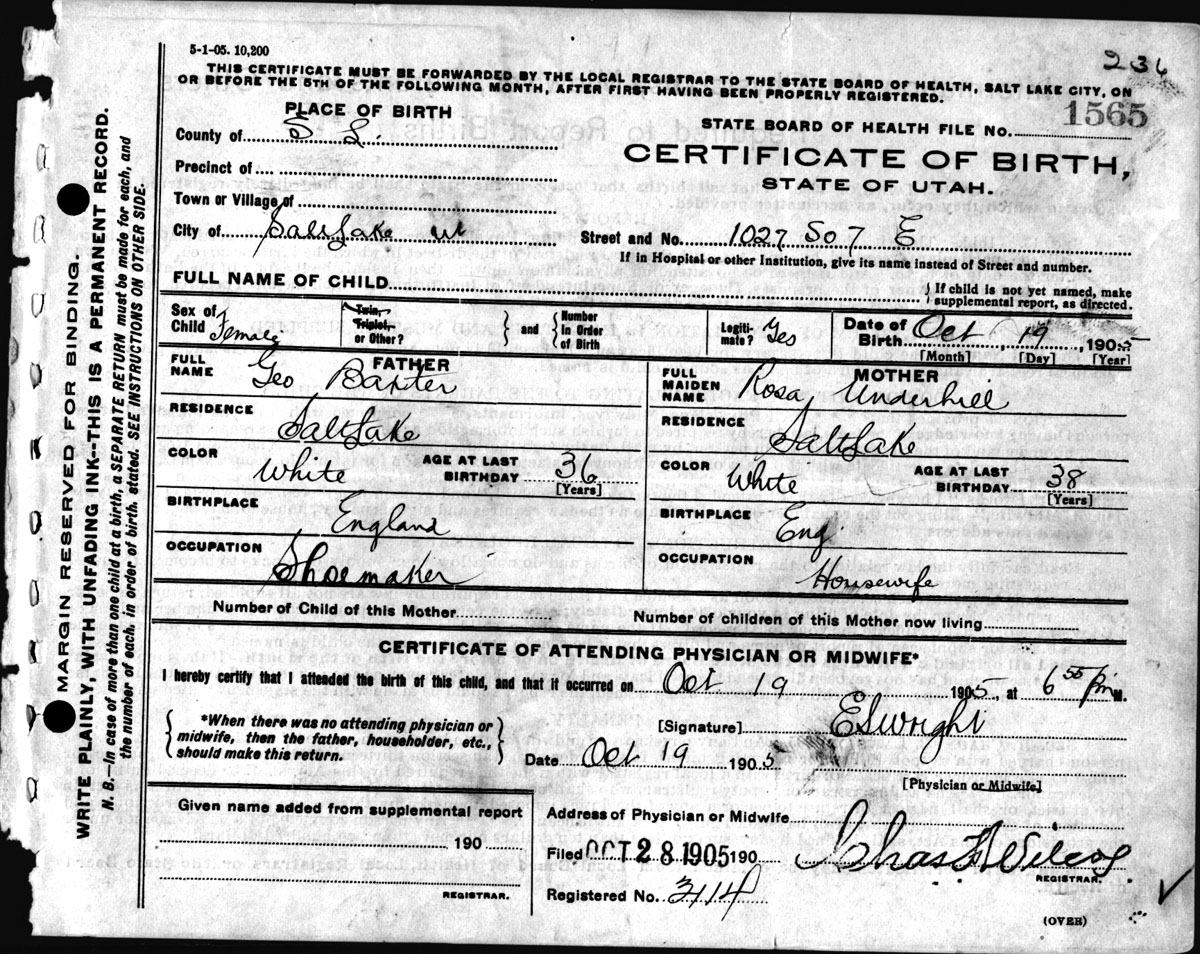 5-1-05. 10,200
236
THIS CERTIFICATE MUST BE FORWARDED BY THE LOCAL REGISTRAR TO THE STATE BOARD OF HEALTH, SALT LAKE CITY, ON
OR BEFORE THE 5TH OF THE FOLLOWING MONTH, AFTER FIRST HAVING BEEN PROPERLY REGISTERED.
PLACE OF BIRTH
County of S L.
Precinct of
Town or Village of
City of Salt Lake Ut
STATE BOARD OF HEALTH FILE NO. 1565
CERTIFICATE OF BIRTH,
STATE OF UTAH.
Street and No. 1027 So 7 E
If in Hospital or other Institution, give its name instead of Street and number.
FULL NAME OF CHILD
} If child is not yet named, make
supplemental report, as directed.
Sex of Child Female
Twin, Triplet, or Other?
} and { Number in Order of Birth
Legiti-mate? Yes
Date of Birth Oct 19 1905
[Month] [Day] [Year]
FATHER
FULL NAME Geo Baxter
RESIDENCE
Salt Lake
COLOR White AGE AT LAST BIRTHDAY 36
[Years]
BIRTHPLACE
England
OCCUPATION
Shoemaker
MOTHER
FULL MAIDEN NAME Rosa Underhill
RESIDENCE
Salt Lake
COLOR White AGE AT LAST BIRTHDAY 38
[Years]
BIRTHPLACE
Eng
OCCUPATION
Housewife
Number of Child of this Mother
Number of children of this Mother now living
CERTIFICATE OF ATTENDING PHYSICIAN OR MIDWIFE*
I hereby certify that I attended the birth of this child, and that it occurred on Oct 19 1905, at 6 55 pm M.
{ *When there was no attending physician or
midwife, then the father, householder, etc.,
should make this return. }
[Signature] ESWright
Date Oct 19 1905
[Physician or Midwife]
Given name added from supplemental report
190
REGISTRAR.
Address of Physician or Midwife
Filed OCT 28 1905 190 Chas F Wilcox
REGISTRAR.
Registered No. 3114
(OVER)
MARGIN RESERVED FOR BINDING.
WRITE PLAINLY, WITH UNFADING INK--THIS IS A PERMANENT RECORD.
N. B.--In case of more than one child at a birth, a SEPARATE RETURN must be made for each, and
the number of each, in order of birth, stated. SEE INSTRUCTIONS ON OTHER SIDE.